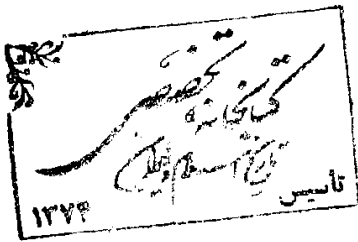 کتابخانه تخصصی
تاریخ اسلام و ایران
تأسیس ۱۳۷۴